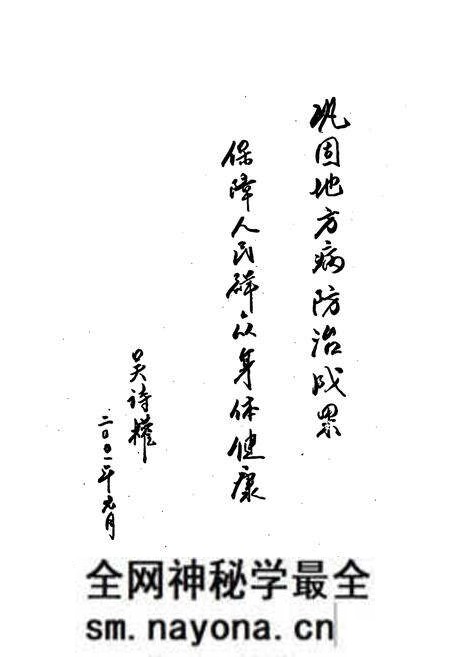 巩固地方病防治成果
保障人民群众身体健康
吴诗耀
二00一年元月
全网神秘学最全
sm.nayona.cn